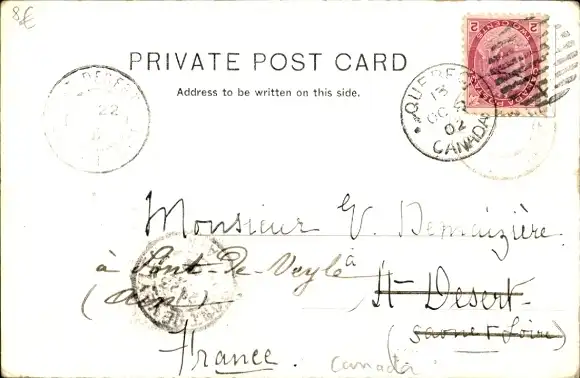 8€
PRIVATE POST CARD
Address to be written on this side.
2 CANADA POSTAGE 2
TWO CENTS
QUEBEC
13
OC 9
02
CANADA
22
Monsieur V. Demaizière
à Pont-de-Veyle à St Desert
(Ain) (Saone & Loire)
France.
Canada